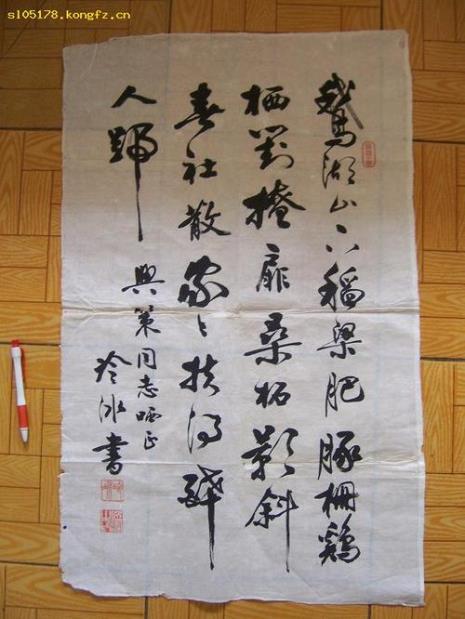 sl05178.kongfz.cn
鵞湖山下稻粱肥豚栅鷄
栖對掩扉桑柘影斜
春社散家々扶得醉
人歸
興策同志哂正
冰書